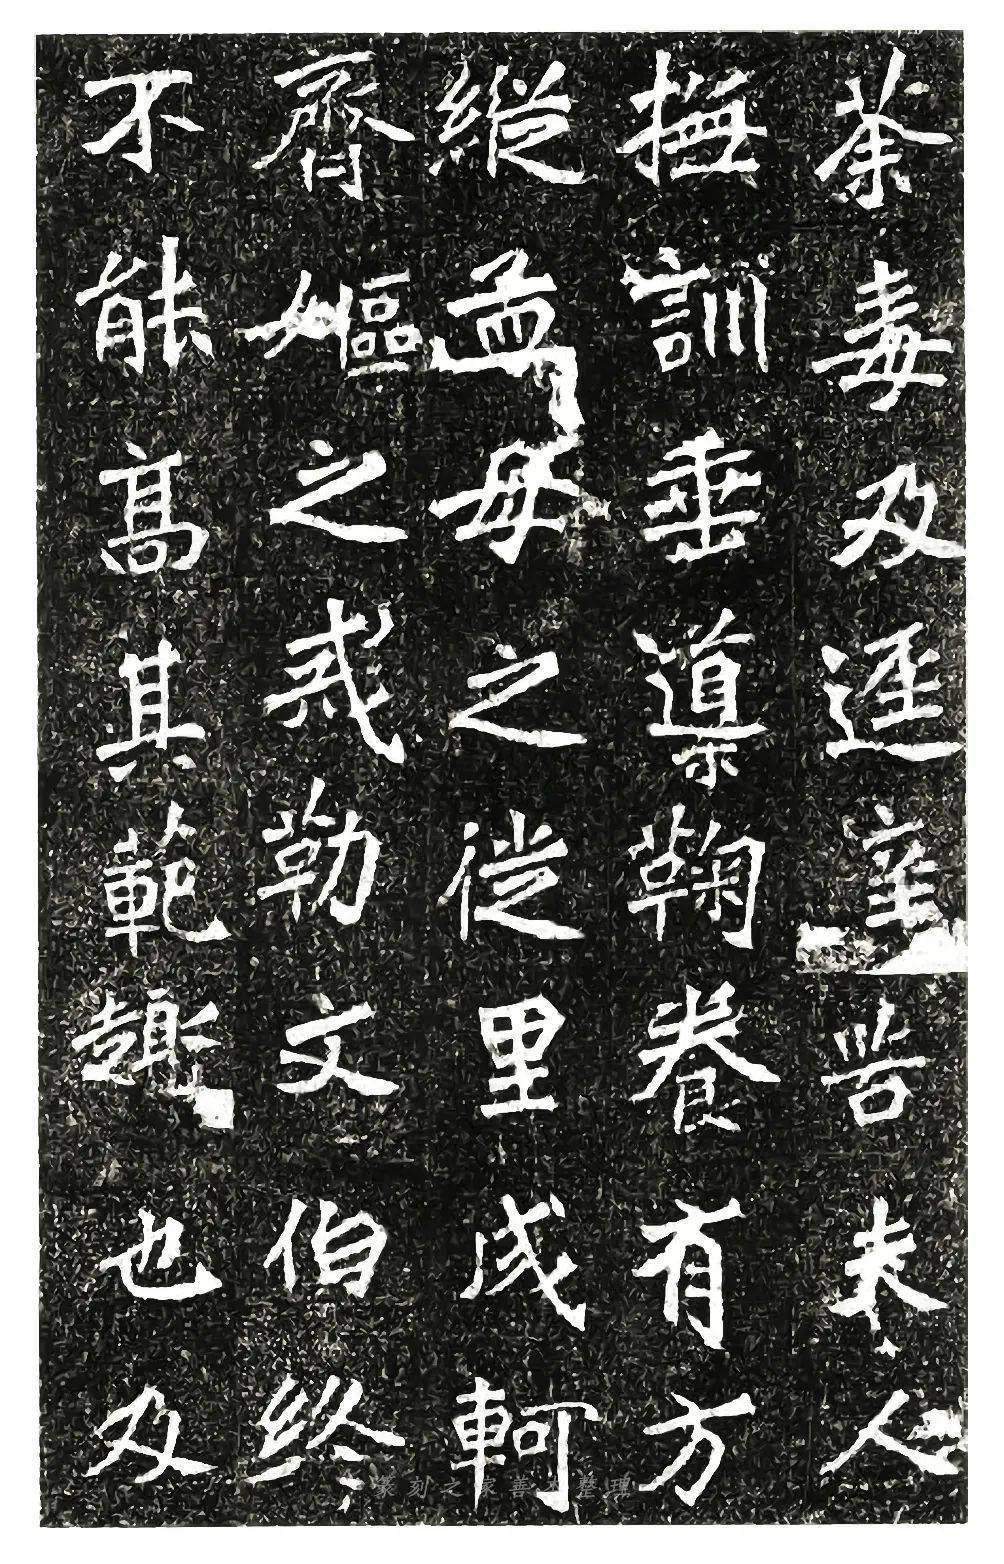 荼毒及逕苦未人
撫訓垂導鞠養有方
縱孟母之徙里成軻
齊嫗之戒勒文伯終
不能高其範也及
篆刻之家善本整理